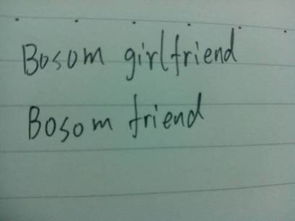 Bosom girlfriend
Bosom friend